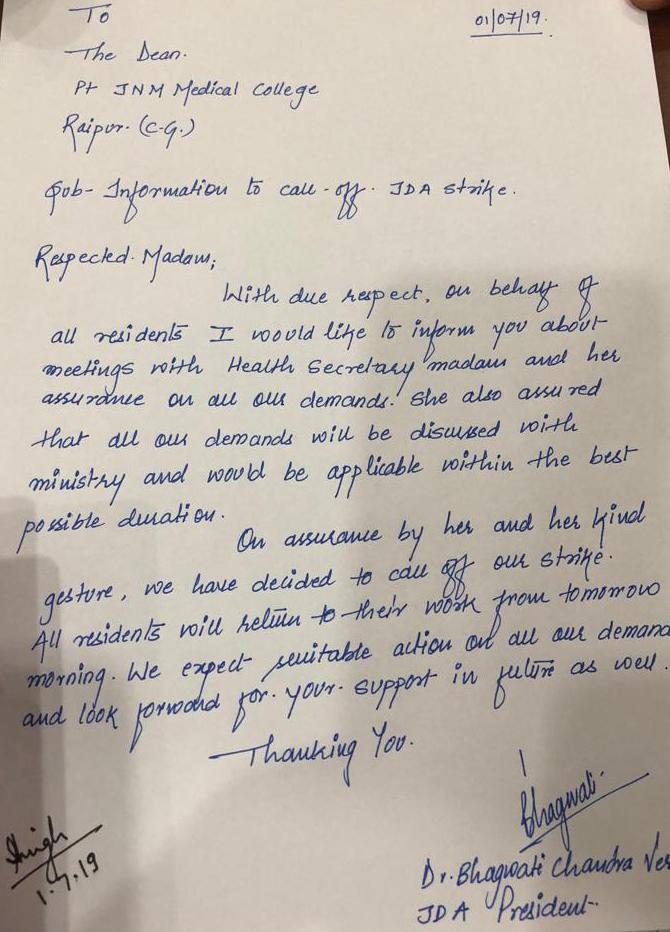 To
01/07/19.
The Dean.
Pt JNM Medical College
Raipur. (C.G.)
Sub- Information to call-off. JDA strike.
Respected. Madam;
With due respect, on behalf of
all residents I would like to inform you about
meetings with Health Secretary madam and her
assurance on all our demands. She also assured
that all our demands will be discussed with
ministry and would be applicable within the best
possible duration.
On assurance by her and her kind
gesture, we have decided to call off our strike.
All residents will return to their work from tomorrow
morning. We expect suitable action on all our demand
and look forward for. your. support in future as well.
Thanking You.
Bhagwati
Singh
1.7.19
Dr. Bhagwati Chandra Ver
JDA President.